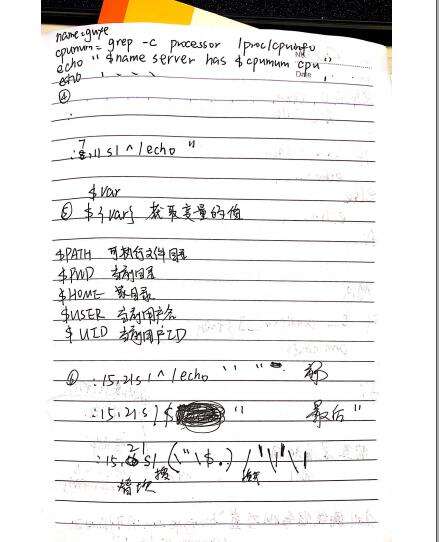 name=guye
cpumum= grep -c processor /proc/cpuinfo
echo " $name server has $cpumum cpu "
No.
Date
echo
④
7
:8,11 s/^/echo "
$var
⑤ ${var} 获取变量的值
$PATH 可执行文件目录
$PWD 当前目录
$HOME 家目录
$USER 当前用户名
$UID 当前用户ID
⑥ :15,21 s/^/echo " "
:15,21 s/$ " 最后"
21
:15, s/ (\"\$.) /"\1"\1
替换